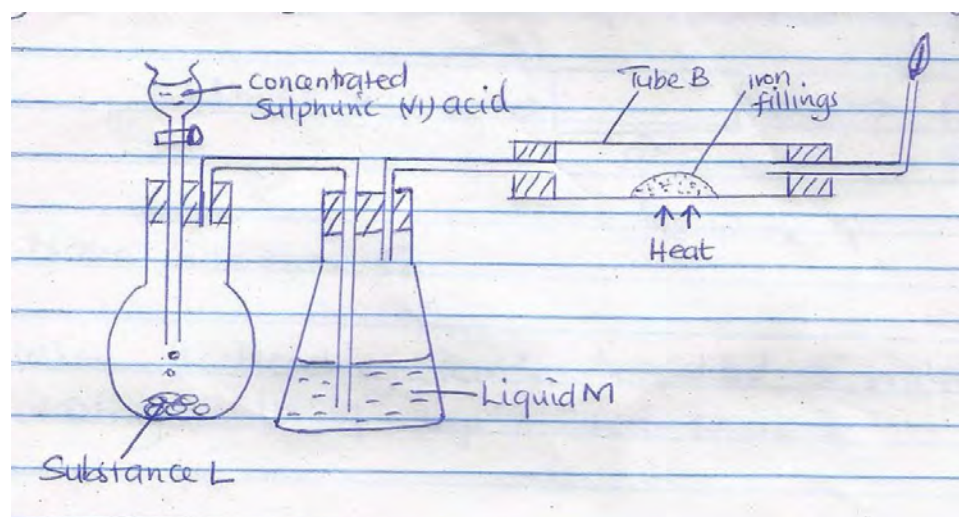 concentrated
Sulphuric (VI) acid
Tube B
iron
fillings
Heat
Liquid M
Substance L